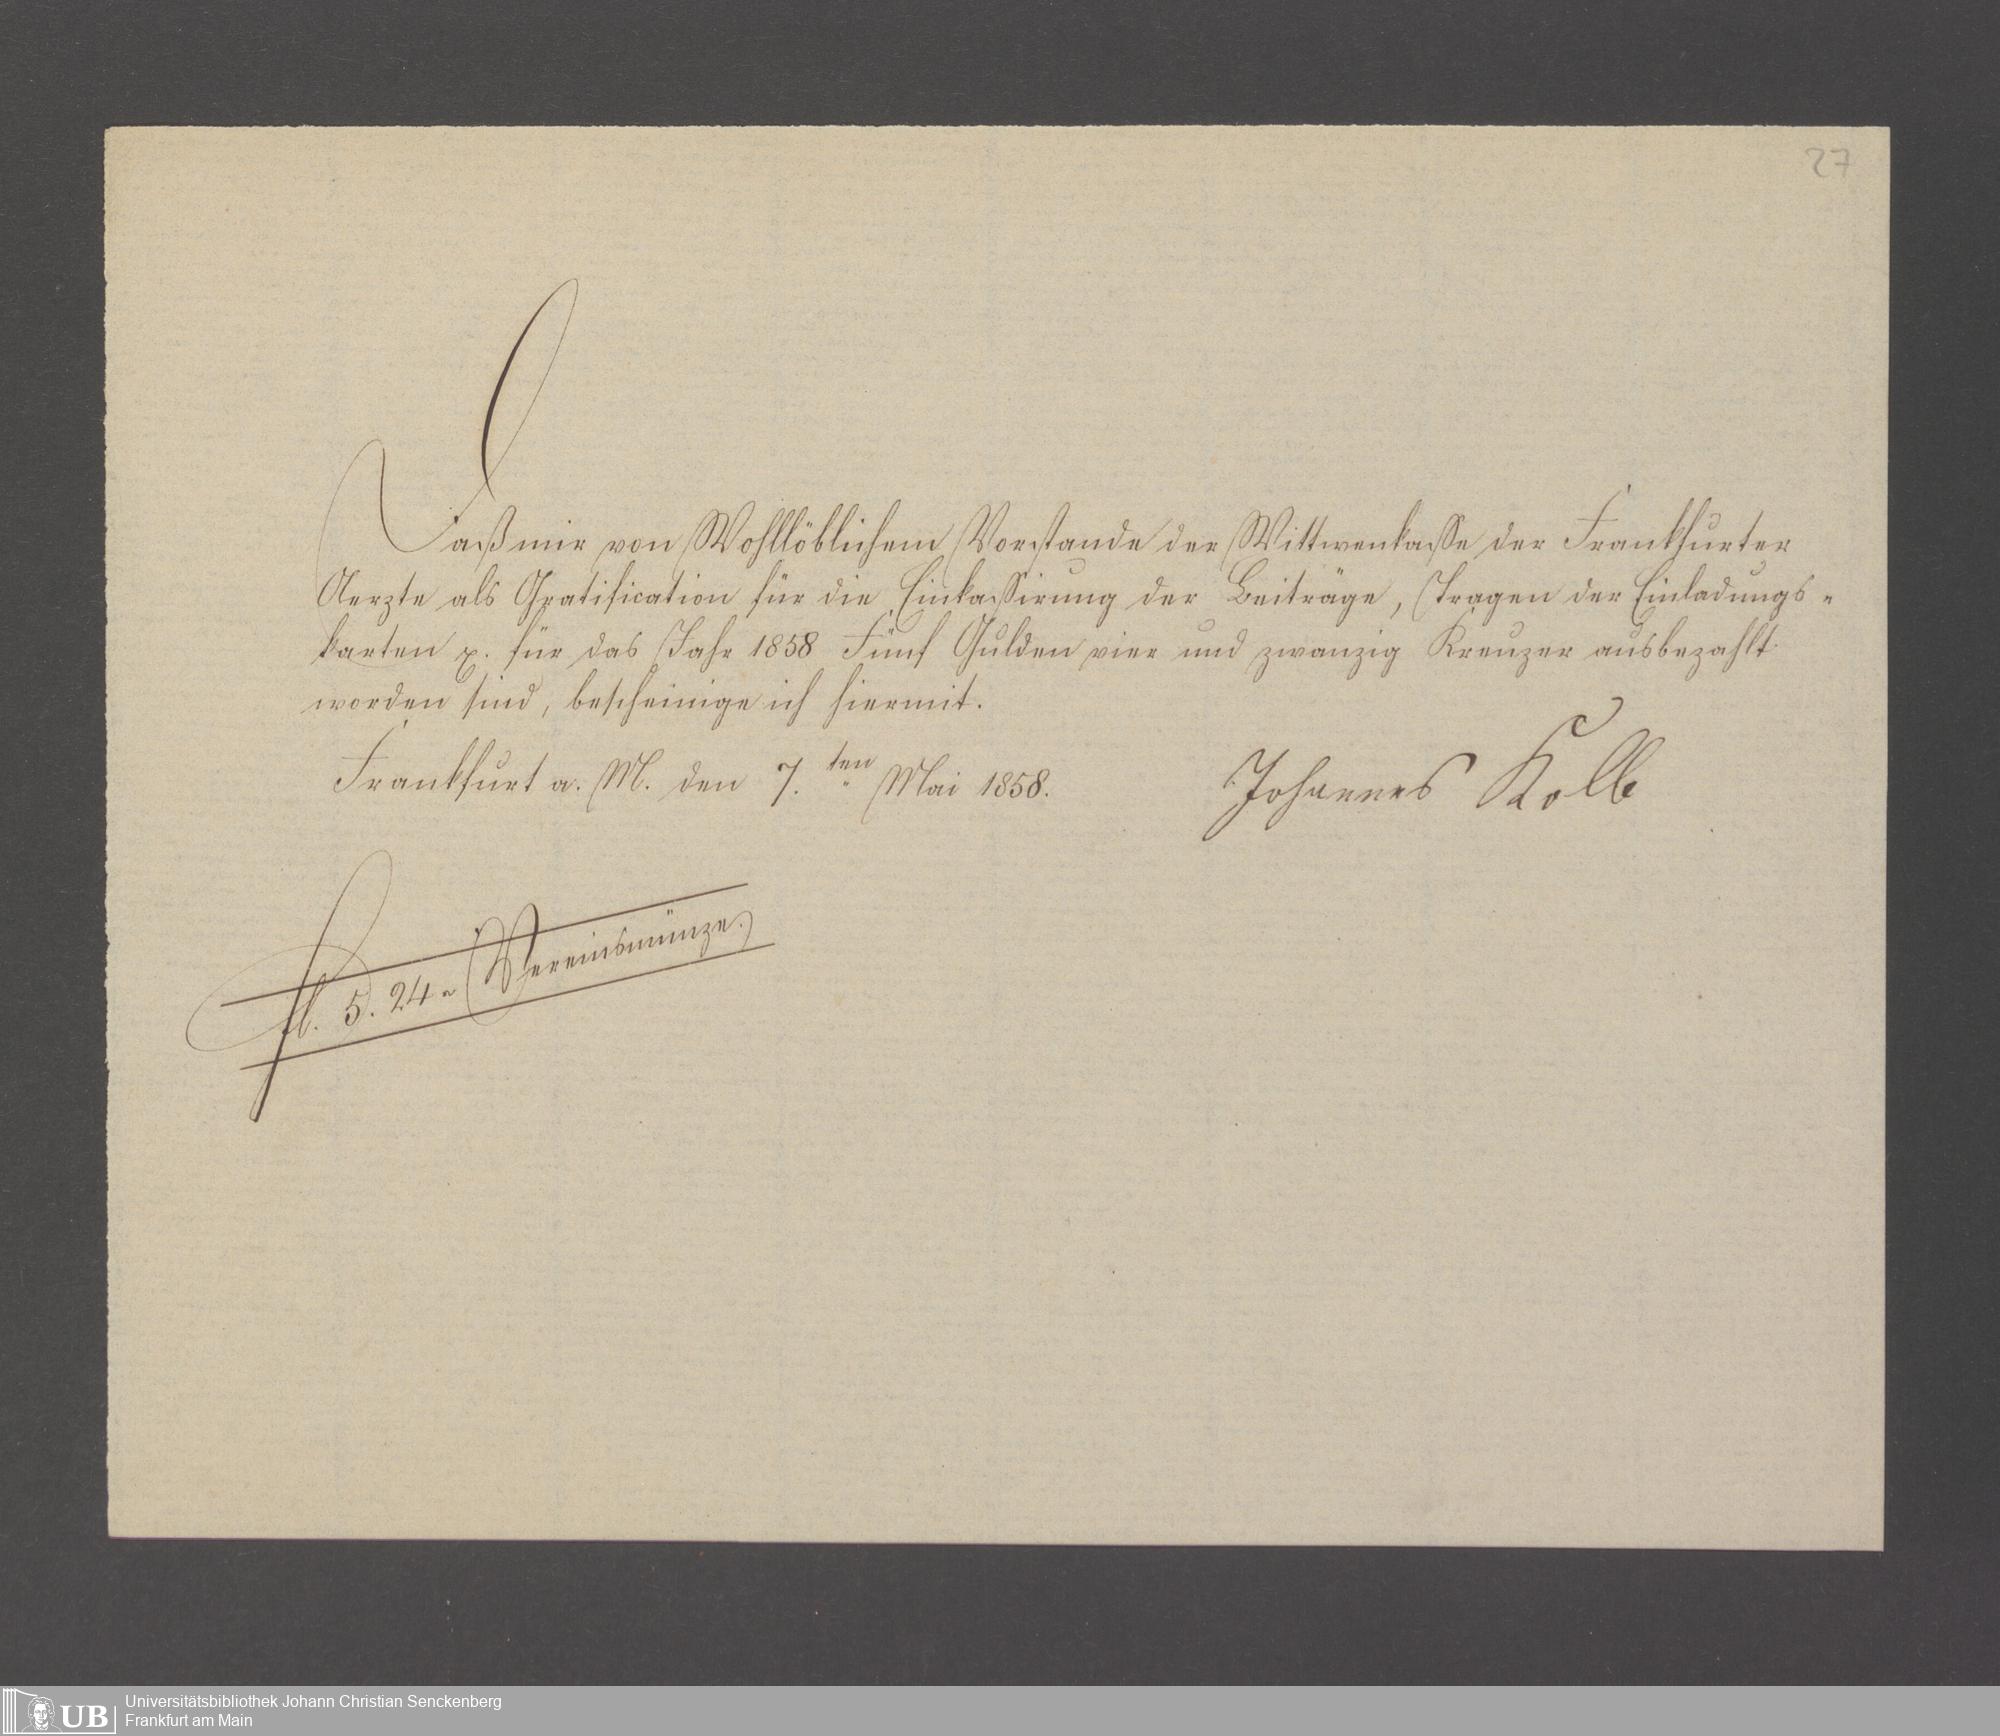 27
Daß mir von Wohllöblichem Vorstande der Wittwenkasse der Frankfurter
Aerzte als Gratification für die Einkassirung der Beiträge, Tragen der Einladungs-
karten p. für das Jahr 1858 Fünf Gulden vier und zwanzig Kreuzer ausbezahlt
worden sind, bescheinige ich hiermit.
Frankfurt a. M. den 7.ten Mai 1858.
Johannes Kolb
fl. 5. 24 Vereinsmünze.
UB
Universitätsbibliothek Johann Christian Senckenberg
Frankfurt am Main